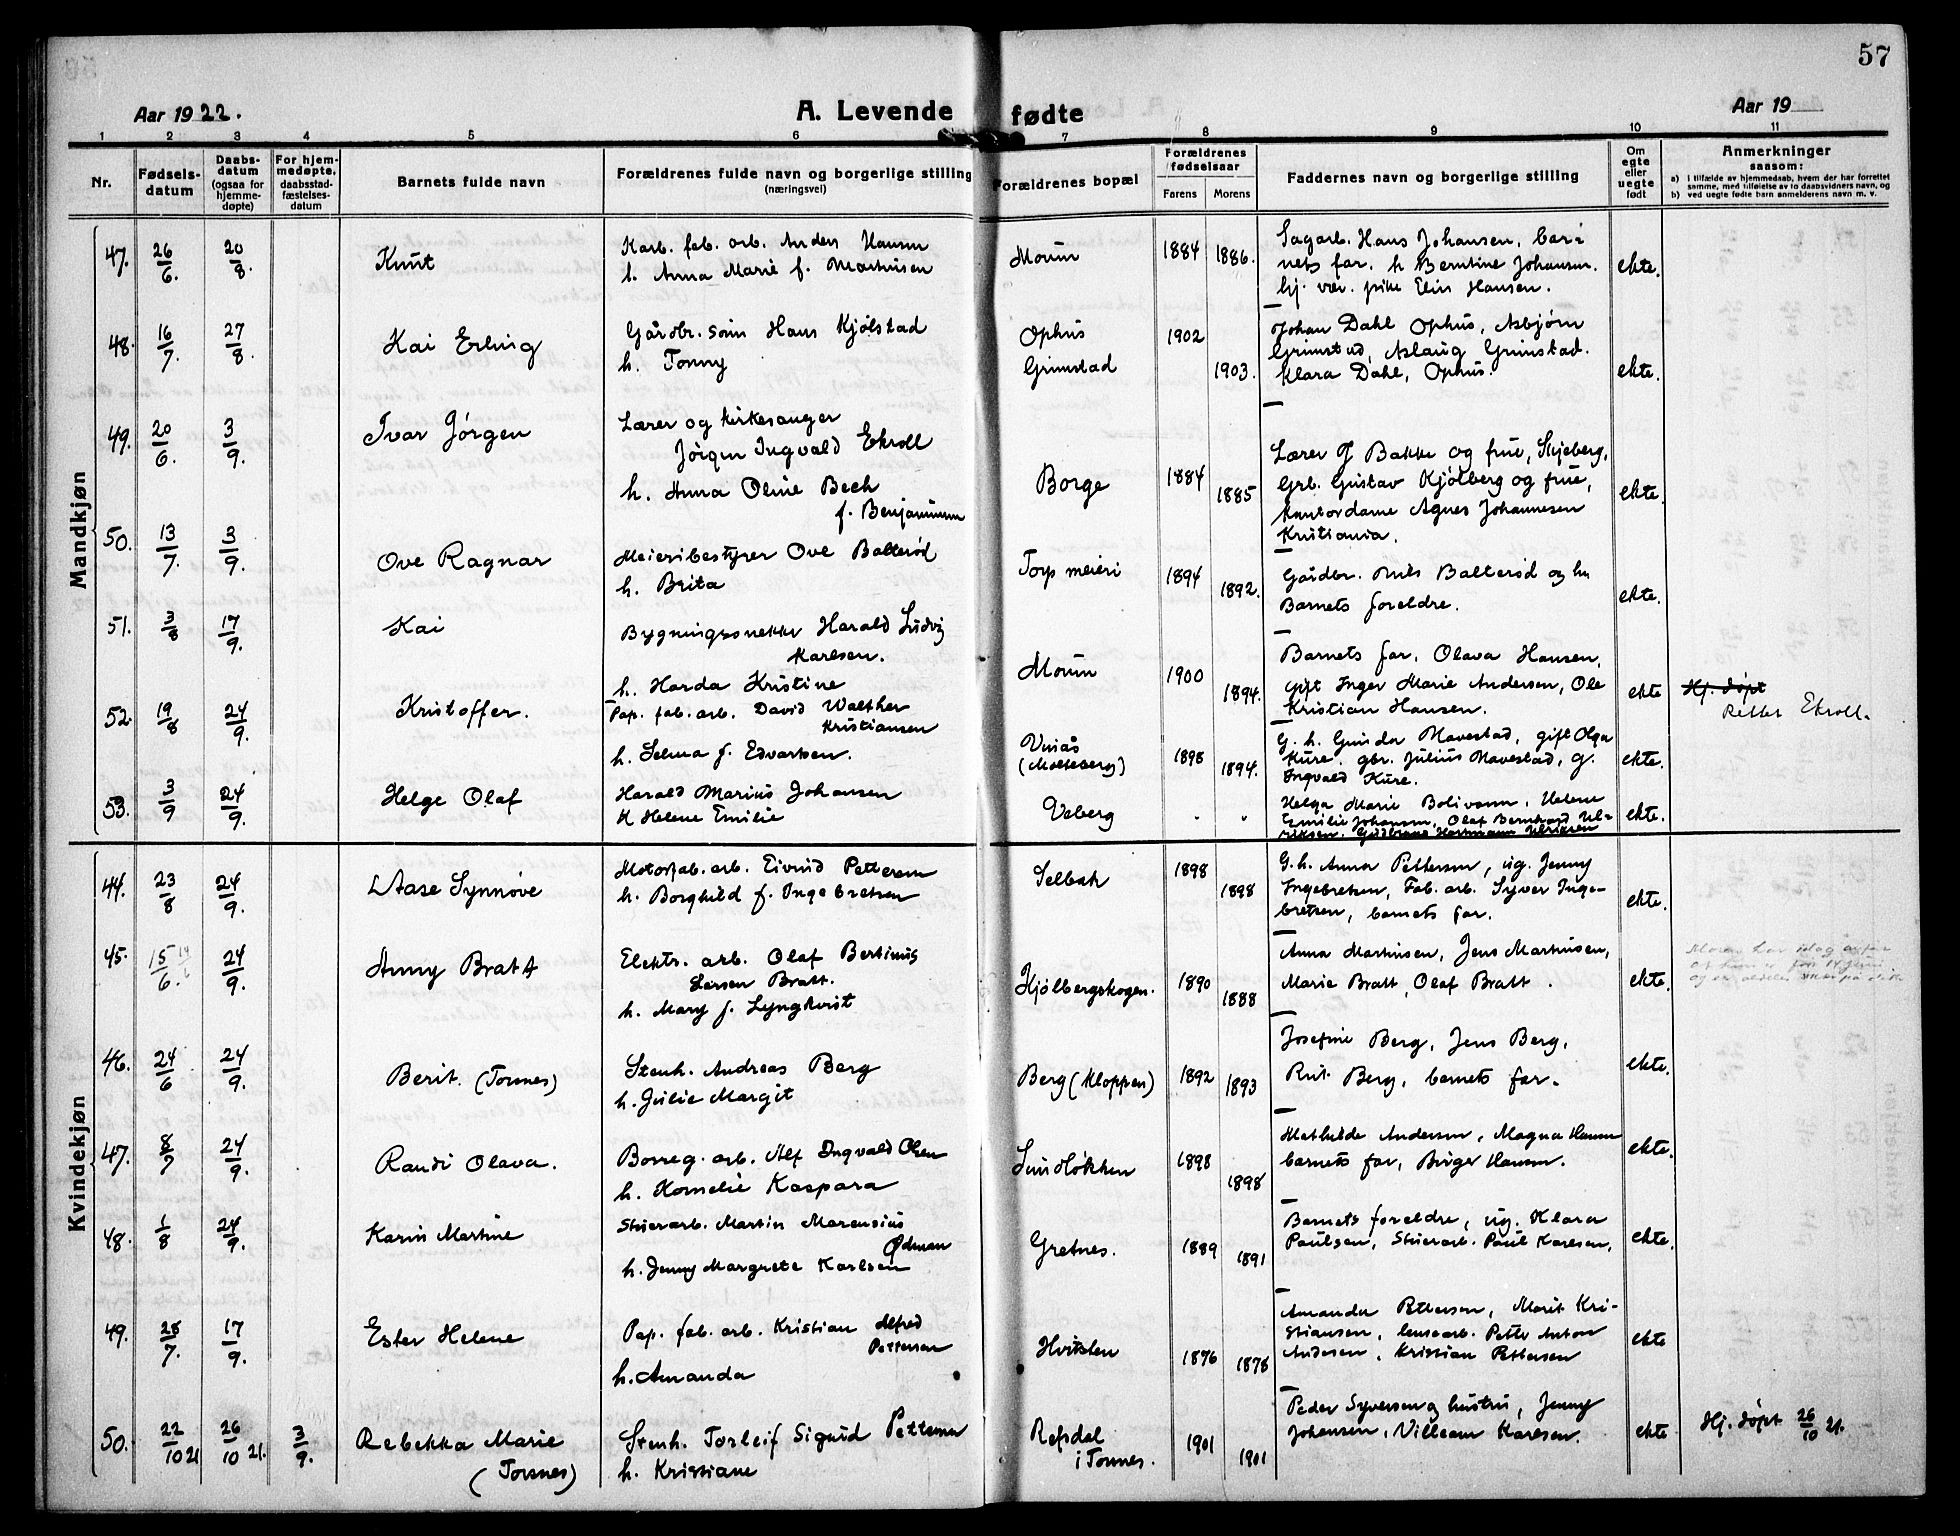 57
Aar 1922.
A. Levende fødte
Aar 19
1 2 3 4 5 6 7 8 9 10 11
Nr.
Fødsels-
datum
Daabs-
datum
(ogsaa for
hjemme-
døpte)
For hjem-
medøpte,
daabsstad-
fæstelses-
datum
Barnets fulde navn
Forældrenes fulde navn og borgerlige stilling
(næringsvei)
Forældrenes bopæl
Forældrenes
fødselsaar
Farens Morens
Faddernes navn og borgerlige stilling
Om
egte
eller
uegte
født
Anmerkninger
saasom:
a) i tilfælde av hjemmedaab, hvem der har forrettet
samme, med tilføielse av to daabsvidners navn, og
b) ved uegte fødte barn anmelderens navn m. v.
Mandkjøn
47. 26/6. 20/8. Knut
Karb. fab. arb. Anders Hansen
h. Anna Marie f. Mathisen
Moum 1884 1886.
Sagarb. Hans Johansen, bar-
nets far. h Berntine Johansen.
hj. vær. pike Elin Hansen.
ekte.
48. 16/7. 27/8. Kai Erling
Gårdbr. sønn Hans Kjølstad
h. Tonny
Ophus
Grimstad
1902 1903.
Johan Dahl Ophus, Asbjørn
Grimstad, Aslaug Grimstad.
Klara Dahl, Ophus.
ekte.
49. 20/6. 3/9. Ivar Jørgen
Lærer og kirkesanger
Jørgen Ingvald Ekroll
h. Anna Oline Bech
f. Benjaminsen
Borge 1884 1885
Lærer O Bakke og frue, Skjeberg,
Grb. Gustav Kjølberg og frue,
kontordame Agnes Johannesen
Kristiania.
ekte.
50. 13/7. 3/9. Ove Ragnar
Meieribestyrer Ove Balterød
h. Brita
Torp meieri 1894 1892.
Gårdbr. Nils Balterød og hu
Barnets foreldre.
ekte.
51. 3/8 17/9. Kai
Bygningssnekker Harald Ludvig
Karlsen.
h. Harda Kristine
Moum 1900 1894.
Barnets far, Olava Hansen,
gift Inger Marie Andersen, Ole
Kristian Hansen.
ekte Hj. døpt
52. 19/8 24/9. Kristoffer.
Pap. fab. arb. David Walther
Kristiansen
h. Selma f. Edvartsen.
(Molteberg) 1895 1894.
G. h. Gunda Navestad, gift Olga
Kure. gbr. Julius Navestad, g.
Ingvald Kure.
ekte. Ekroll.
53. 3/9 24/9. Helge Olaf
Harald Marius Johansen
H Helene Emilie
Veberg " "
Helga Marie Bolivann, Helene
Emilie Johansen, Olaf Bernhard Ul-
riksen. Gudbrand Hartmann Ulriksen
ekte.
Kvindekjøn
44. 23/8 24/9. Aase Synnøve
Motorfab. arb. Eivind Pettersen
h. Borghild f. Ingebretsen
Selbak 1898 1898
G. h. Anna Pettersen, ug. Jenny
Ingebretsen, Fab. arb. Syver Inge-
bretsen, barnets far.
ekte.
45. 15/6. 24/9. Anny Bratt
Elektr. arb. Olaf Bertinus
Larsen Bratt.
h. Mary f. Lyngkvist
Kjølbergskogen. 1890 1888
Anna Martinsen, Jens Martinsen,
Marie Bratt, Olaf Bratt.
ekte.
46. 24/6 24/9. Berit. (Torsnes)
Stenh. Andreas Berg
h. Julie Margit
Berg (Kloppen) 1892 1893
Josefine Berg, Jens Berg,
Rut Berg, barnets far.
ekte.
47. 8/7 24/9. Randi Olava.
Borreg. arb. Alf Ingvald Olsen
h. Kornelie Kaspara
Sundløkken 1898 1898
Mathilde Andersen, Magna Hansen
barnets far, Birger Hansen.
ekte.
48. 1/8 24/9. Karin Martine
Stuerarb. Martin Marensius
Ødman
h. Jenny Margrete Karlsen
Gretnes. 1889 1891
Barnets foreldre, ug. Klara
Paulsen, Stuerarb. Paul Karlsen,
ekte.
49. 28/7. 17/9. Ester Helene
Pap. fab. arb. Kristian Alfred
Pettersen
h. Amanda
Hvitsten 1876 1878
Amanda Pettersen, Marit Kri-
stiansen, lensearb. Petter Anton
Andersen, Kristian Pettersen
ekte
50. 22/10 21 26/10 21. 3/9. Rebekka Marie
(Torsnes)
Stenh. Torleif Sigurd Pettersen
h. Kristiane
Refsdal
i Torsnes. 1901 1901
Peder Syversen og hustru, Jenny
Johansen, Villeam Karlsen.
ekte Hj. døpt 26/10 21.